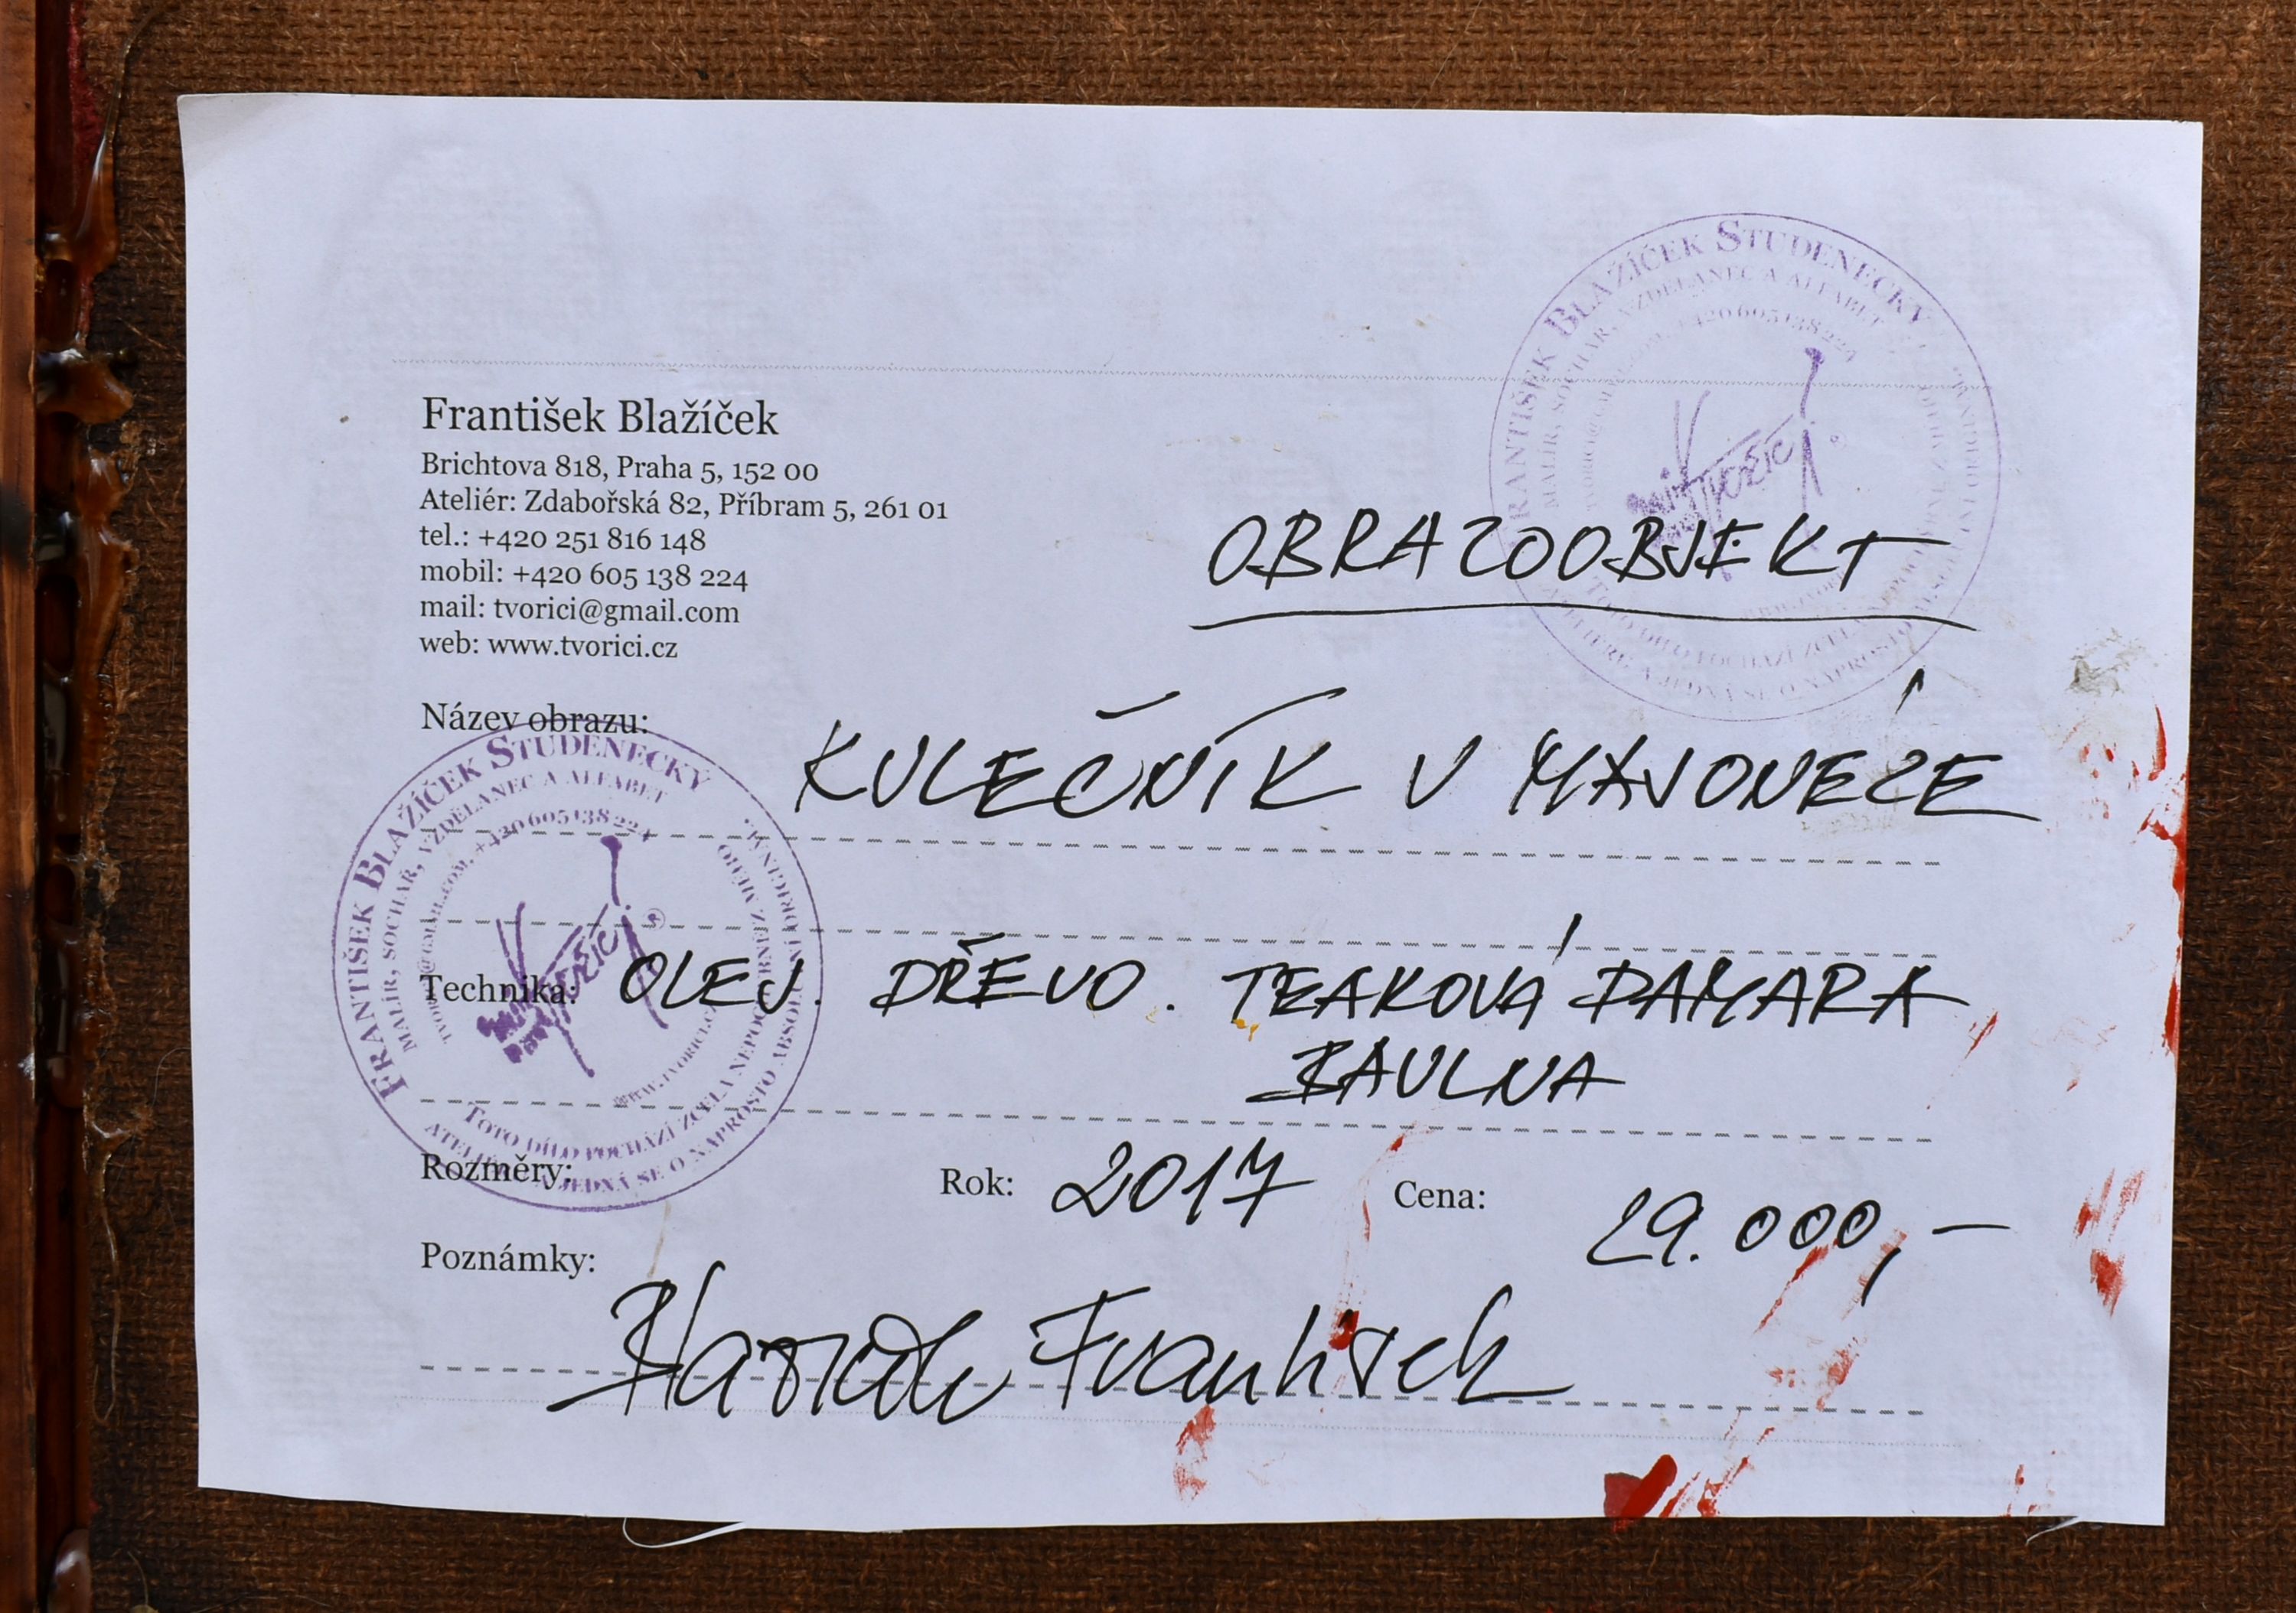 František Blažíček
Brichtova 818, Praha 5, 152 00
Ateliér: Zdabořská 82, Příbram 5, 261 01
tel.: +420 251 816 148
mobil: +420 605 138 224
mail: tvorici@gmail.com
web: www.tvorici.cz
OBRAZOOBJEKT
Název obrazu:
KULEČNÍK V MAJONÉZE
Technika: OLEJ. DŘEVO. TEAKOVÁ DAMARA
BAVLNA
Rozměry:
Rok: 2017
Cena: 29.000,-
Poznámky:
František
FRANTIŠEK BLAŽÍČEK STUDENECKÝ
MALÍŘ, SOCHAŘ, VZDĚLANEC A ALFABET
TVORICI@GMAIL.COM, +420 605 138 224
WWW.TVORICI.CZ
TOTO DÍLO POCHÁZÍ ZCELA NEPOCHYBNĚ Z MÉHO
ATELIÉRU A JEDNÁ SE O NAPROSTO ABSOLUTNÍ ORIGINÁL.
FRANTIŠEK BLAŽÍČEK STUDENECKÝ
MALÍŘ, SOCHAŘ, VZDĚLANEC A ALFABET
TVORICI@GMAIL.COM, +420 605 138 224